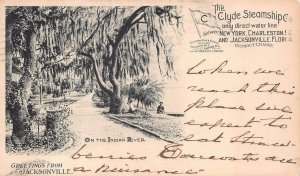 The
Clyde Steamship Co
only direct water line
NEW YORK, CHARLESTON, S.C.
AND JACKSONVILLE, FLORIDA
WITHOUT CHANGE
C
ON THE INDIAN RIVER.
GREETINGS FROM
JACKSONVILLE.
when we
reach this
place we
expect to
eat Straw-
berries
a